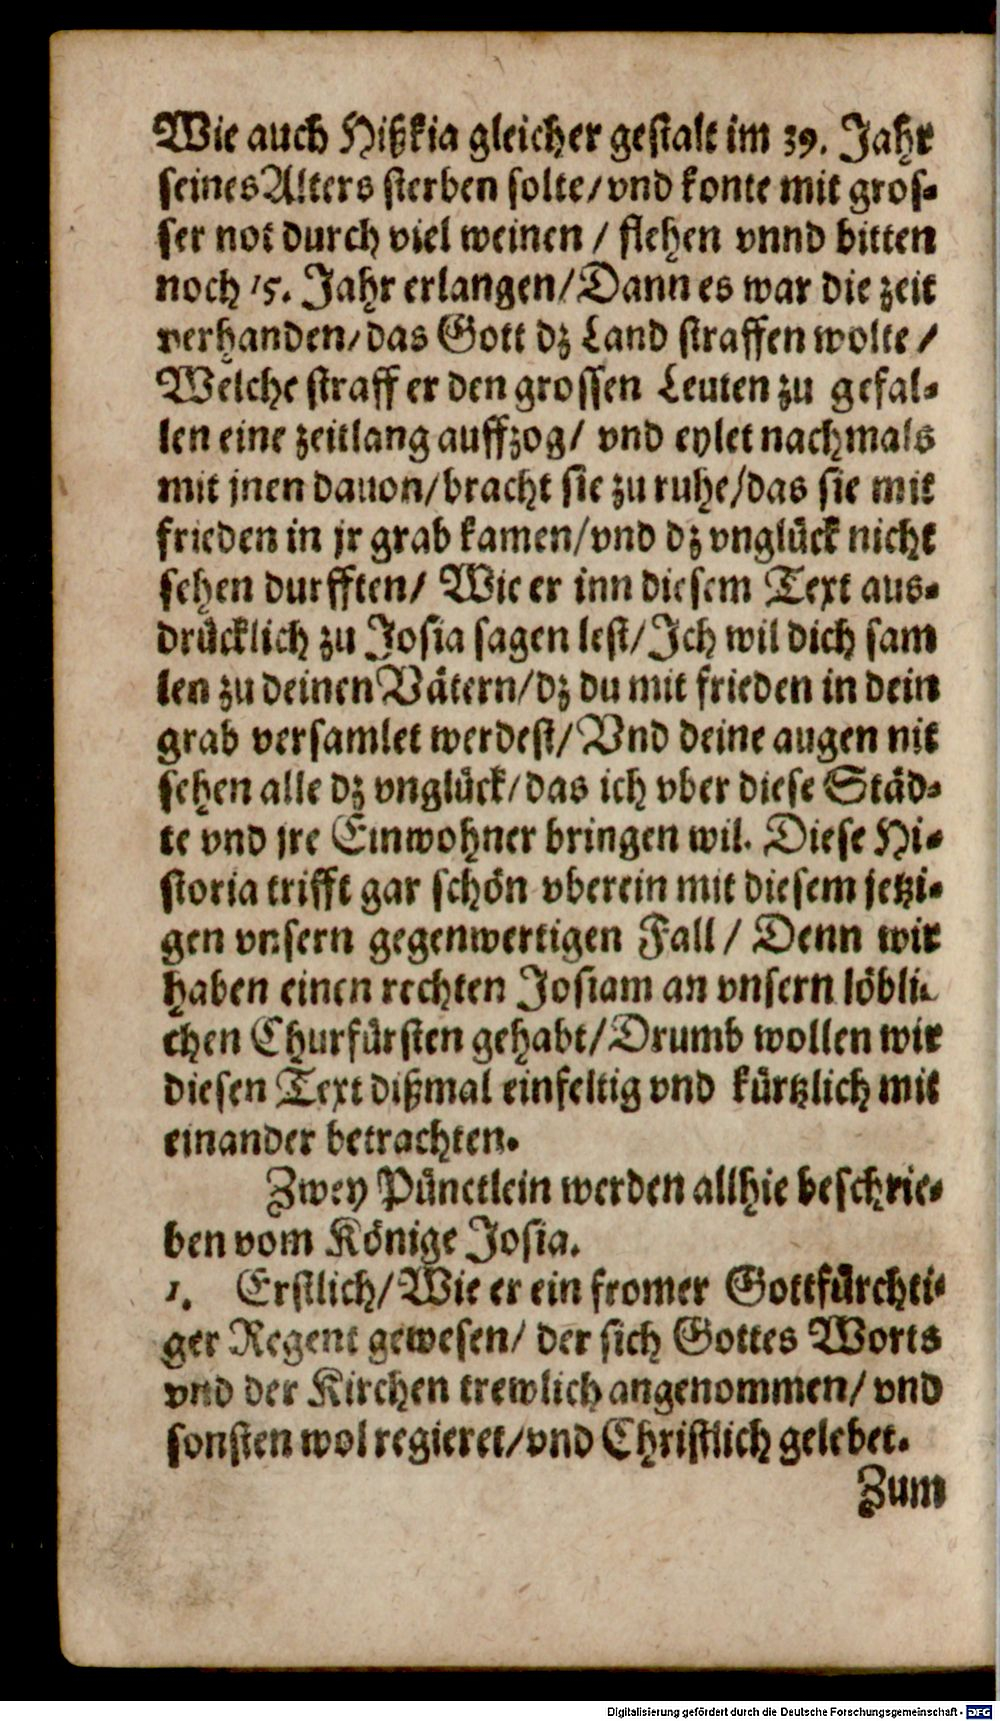 Wie auch Hißkia gleicher gestalt im 39. Jahr
seines Alters sterben solte/ vnd konte mit gros-
ser not durch viel weinen / flehen vnnd bitten
noch 15. Jahr erlangen/ Dann es war die zeit
verhanden/ das Gott dz Land straffen wolte /
Welche straff er den grossen Leuten zu gefal-
len eine zeitlang auffzog/ vnd eylet nachmals
mit jnen dauon/ bracht sie zu ruhe/ das sie mit
frieden in jr grab kamen/ vnd dz vnglück nicht
sehen durfften/ Wie er inn diesem Text aus-
drücklich zu Josia sagen lest/ Ich wil dich sam
len zu deinen Vätern/ dz du mit frieden in dein
grab versamlet werdest/ Vnd deine augen nit
sehen alle dz vnglück/ das ich vber diese Städ-
te vnd jre Einwohner bringen wil. Diese Hi-
storia trifft gar schön vberein mit diesem jetzi-
gen vnsern gegenwertigen Fall / Denn wir
haben einen rechten Josiam an vnsern löbli-
chen Churfürsten gehabt/ Drumb wollen wir
diesen Text dißmal einfeltig vnd kürtzlich mit
einander betrachten.
Zwey Pünctlein werden allhie beschrie-
ben vom Könige Josia.
1. Erstlich/ Wie er ein fromer Gottfürchti-
ger Regent gewesen/ der sich Gottes Worts
vnd der Kirchen trewlich angenommen/ vnd
sonsten wol regieret/ vnd Christlich gelebet.
Zum
Digitalisierung gefördert durch die Deutsche Forschungsgemeinschaft - DFG